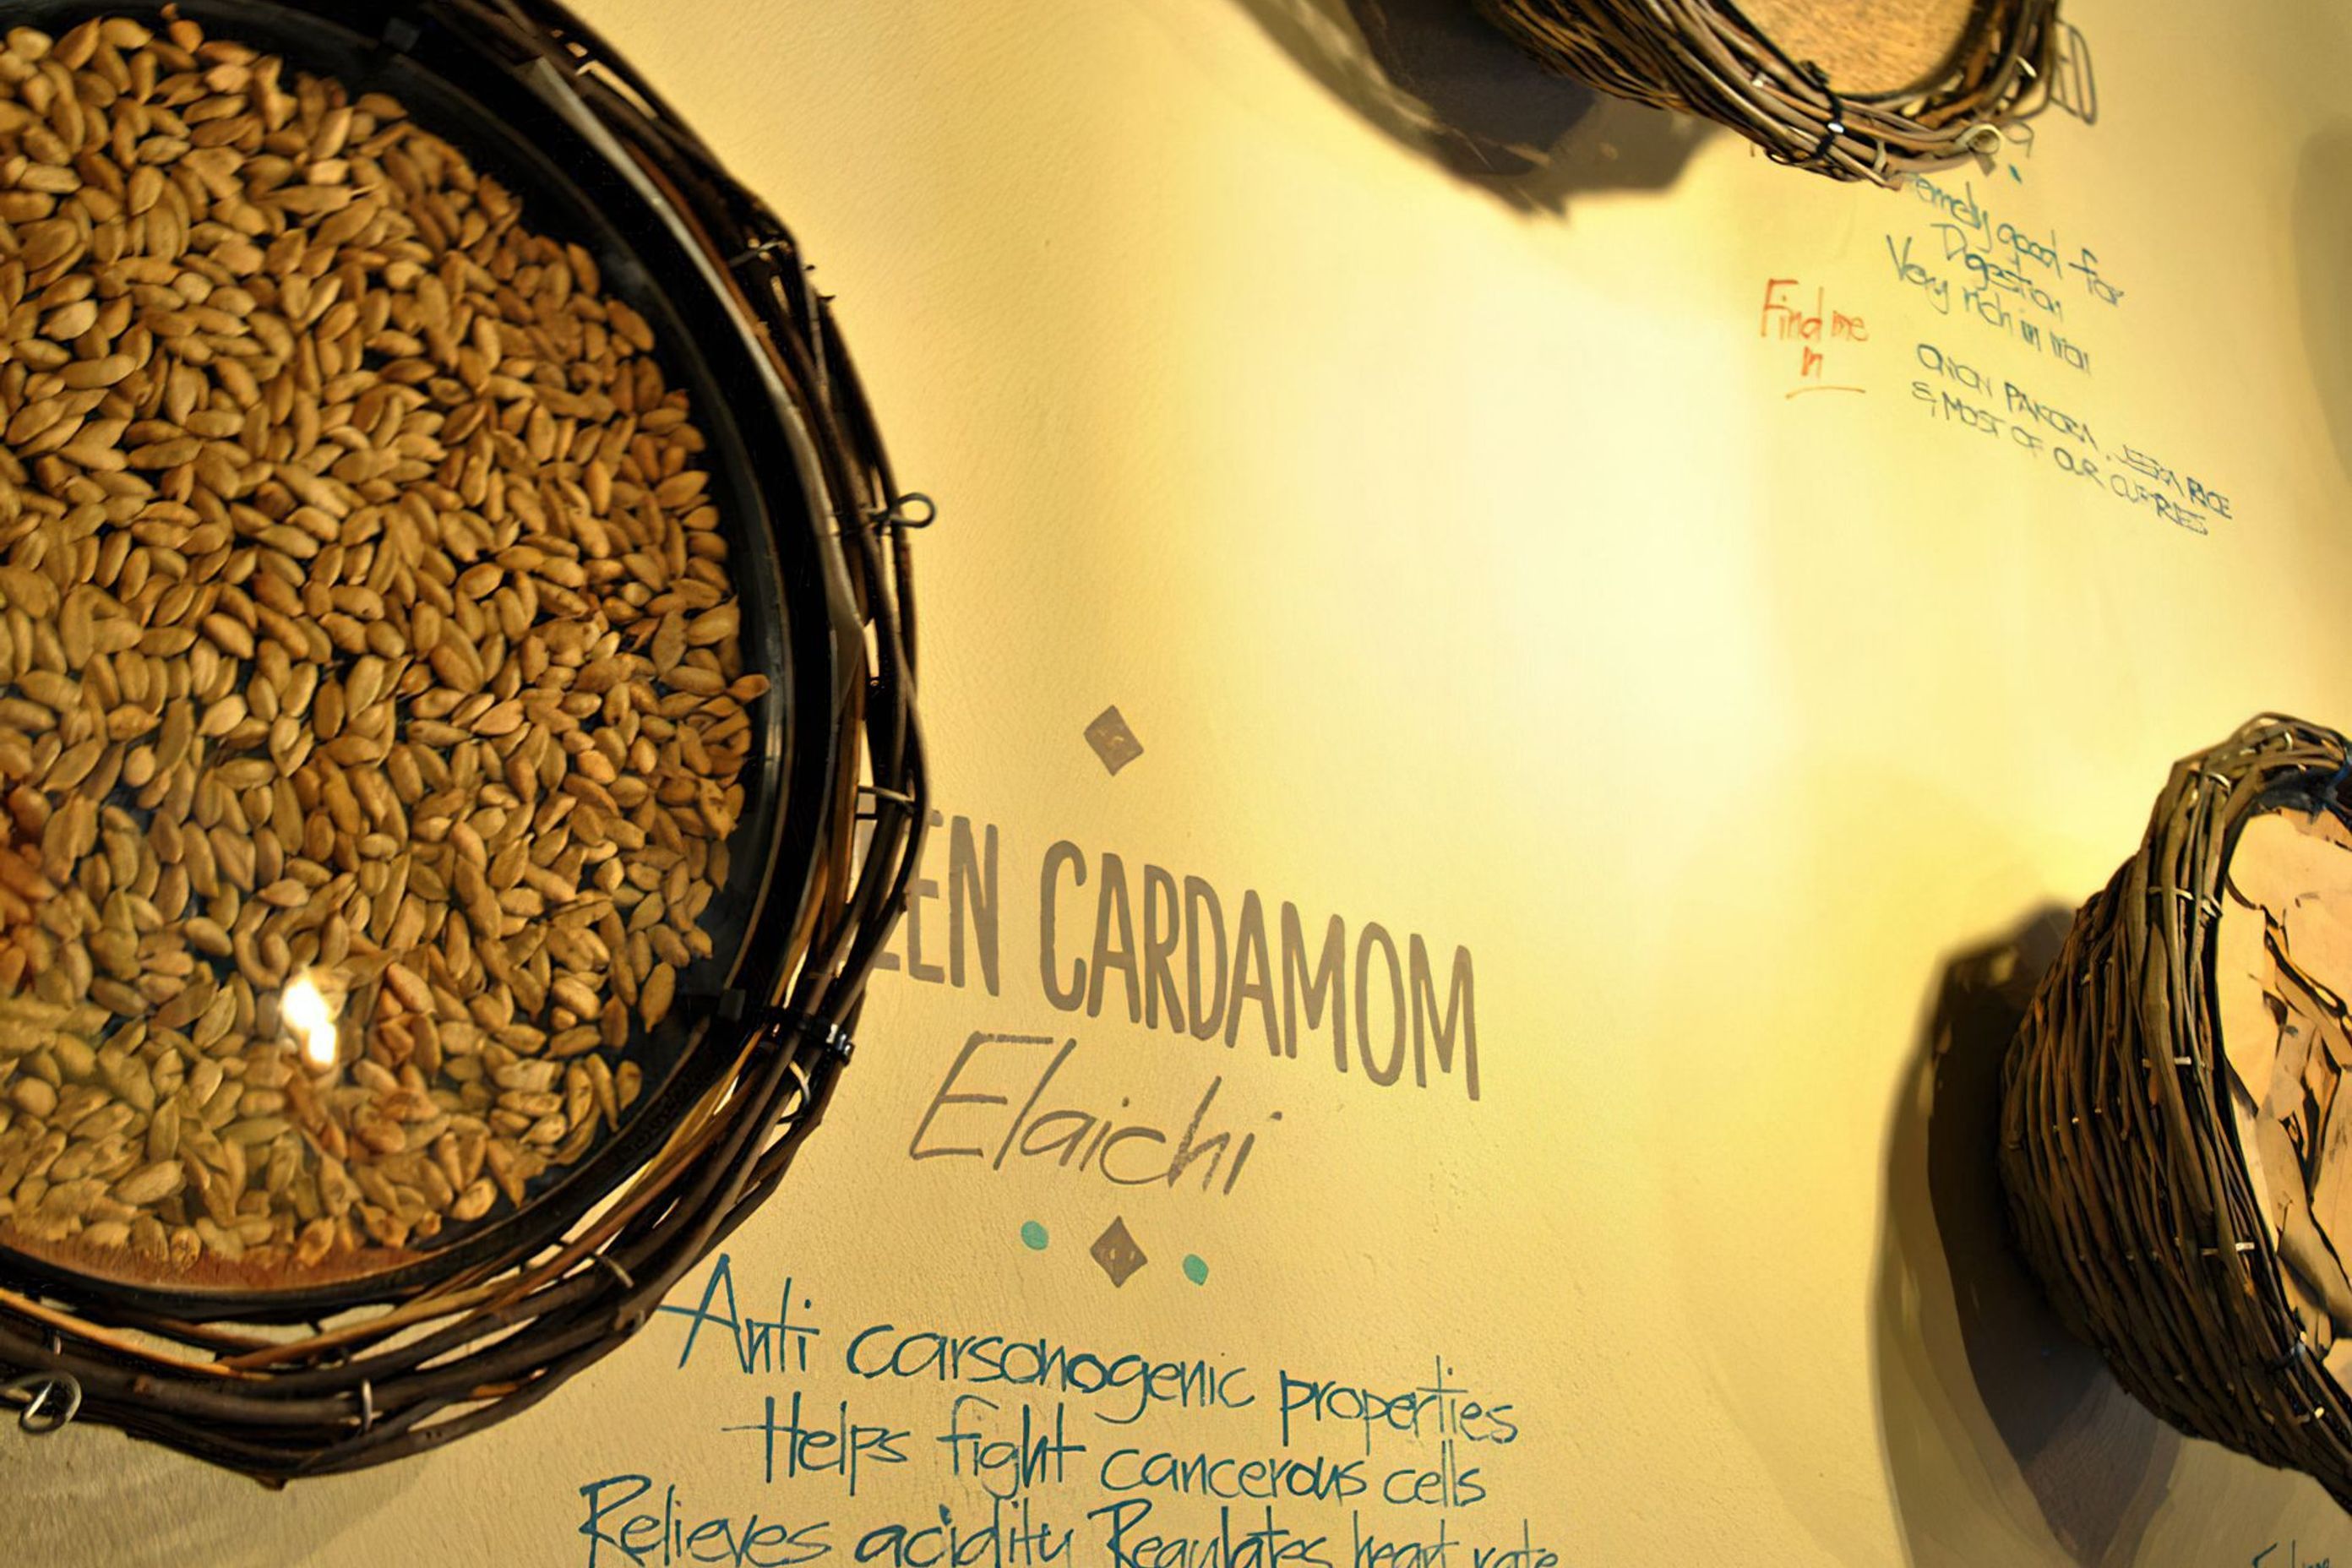 EEN CARDAMOM
Elaichi
Anti carsonogenic properties
Helps fight cancerous cells
Relieves acidity Regulates heart rate
emely good for
Digestion
Very rich in iron
Find me
in
ONION PAKORA, JEERA RICE
& MOST OF OUR CURRIES